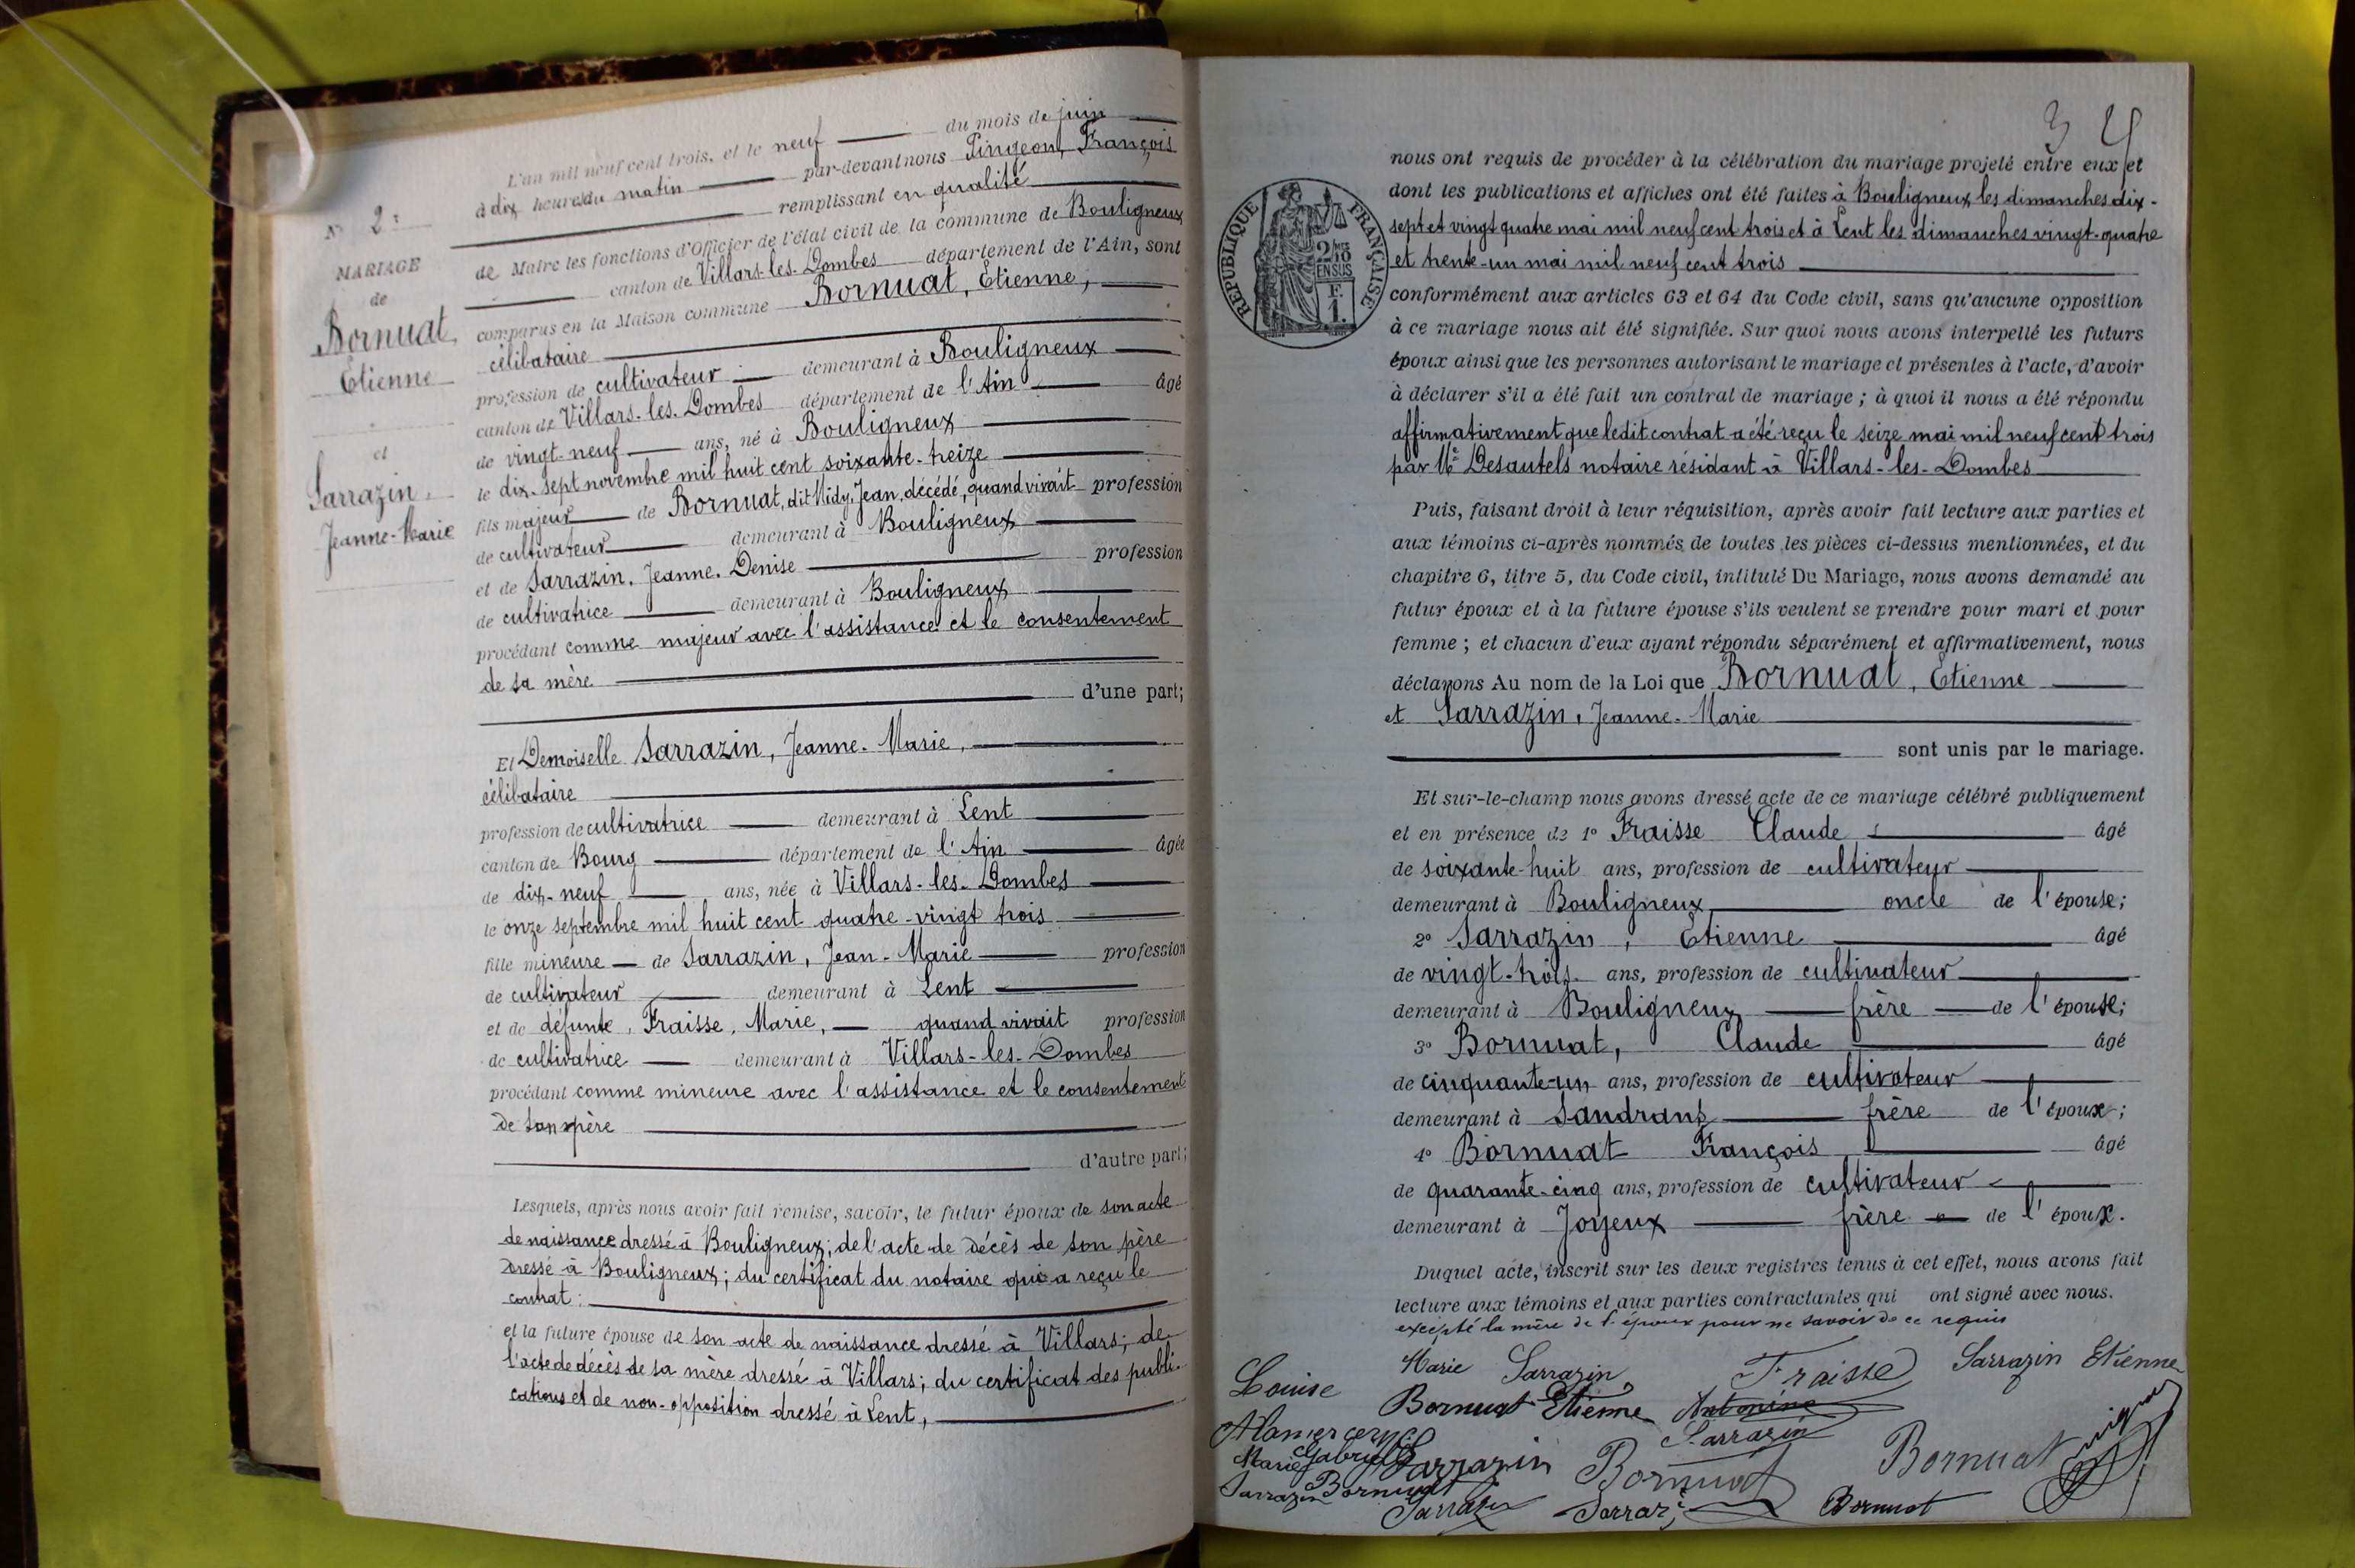 N° 2:
MARIAGE
de
Bornuat,
Etienne
et
Sarrazin,
Jeanne-Marie
L'an mil neuf cent trois, et le neuf du mois de juin
à dix heures du matin par-devant nous Pingeon, François
remplissant en qualité
de Maire les fonctions d'Officier de l'état civil de la commune de Bouligneux
canton de Villars-les-Dombes département de l'Ain, sont
comparus en la Maison commune Bornuat, Etienne,
célibataire
profession de cultivateur demeurant à Bouligneux
canton de Villars-les-Dombes département de l'Ain âgé
de vingt-neuf ans, né à Bouligneux
le dix-sept novembre mil huit cent soixante-treize
fils majeur de Bornuat, dit Midy, Jean, décédé, quand vivait profession
de cultivateur demeurant à Bouligneux
et de Sarrazin, Jeanne-Denise profession
de cultivatrice demeurant à Bouligneux
procédant comme majeur avec l'assistance et le consentement
de sa mère
d'une part;
Et Demoiselle Sarrazin, Jeanne-Marie,
célibataire
profession de cultivatrice demeurant à Lent
canton de Bourg département de l'Ain âgée
de dix-neuf ans, née à Villars-les-Dombes
le onze septembre mil huit cent quatre-vingt trois
fille mineure de Sarrazin, Jean-Marie profession
de cultivateur demeurant à Lent
et de défunte, Fraisse, Marie, quand vivait profession
de cultivatrice demeurant à Villars-les-Dombes
procédant comme mineure avec l'assistance et le consentement
de son père
d'autre part;
Lesquels, après nous avoir fait remise, savoir, le futur époux de son acte
de naissance dressé à Bouligneux; de l'acte de décès de son père
dressé à Bouligneux; du certificat du notaire qui a reçu le
contrat;
et la future épouse de son acte de naissance dressé à Villars; de
l'acte de décès de sa mère dressé à Villars; du certificat des publi-
cations et de non-opposition dressé à Lent,
3
RÉPUBLIQUE FRANÇAISE
2/10
EN SUS
F.
1.
nous ont requis de procéder à la célébration du mariage projeté entre eux et
dont les publications et affiches ont été faites à Bouligneux les dimanches dix-
sept et vingt quatre mai mil neuf cent trois et à Lent les dimanches vingt-quatre
et trente-un mai mil neuf cent trois
conformément aux articles 63 et 64 du Code civil, sans qu'aucune opposition
à ce mariage nous ait été signifiée. Sur quoi nous avons interpellé les futurs
époux ainsi que les personnes autorisant le mariage et présentes à l'acte, d'avoir
à déclarer s'il a été fait un contrat de mariage; à quoi il nous a été répondu
affirmativement que ledit contrat a été reçu le seize mai mil neuf cent trois
par Me Desautels notaire résidant à Villars-les-Dombes
Puis, faisant droit à leur réquisition, après avoir fait lecture aux parties et
aux témoins ci-après nommés de toutes les pièces ci-dessus mentionnées, et du
chapitre 6, titre 5, du Code civil, intitulé Du Mariage, nous avons demandé au
futur époux et à la future épouse s'ils veulent se prendre pour mari et pour
femme; et chacun d'eux ayant répondu séparément et affirmativement, nous
déclarons Au nom de la Loi que Bornuat, Etienne
et Sarrazin, Jeanne-Marie
sont unis par le mariage.
Et sur-le-champ nous avons dressé acte de ce mariage célébré publiquement
et en présence de 1° Fraisse Claude âgé
de soixante-huit ans, profession de cultivateur
demeurant à Bouligneux oncle de l'épouse;
2° Sarrazin, Etienne âgé
de vingt-trois ans, profession de cultivateur
demeurant à Bouligneux frère de l'épouse;
3° Bornuat, Claude âgé
de cinquante-un ans, profession de cultivateur
demeurant à Sandrans frère de l'époux;
4° Bornuat François âgé
de quarante-cinq ans, profession de cultivateur
demeurant à Joyeux frère de l'époux.
Duquel acte, inscrit sur les deux registres tenus à cet effet, nous avons fait
lecture aux témoins et aux parties contractantes qui ont signé avec nous.
excepté la mère de l'époux pour ne savoir de ce requis
Marie Sarrazin Fraisse Sarrazin Etienne
Louise Bornuat Etienne Antonine
Sarrazin
Marie Gabriel Sarrazin Bornuat Bornuat
Sarrazin Bornuat
Sarrazin Sarrazi Bornuat